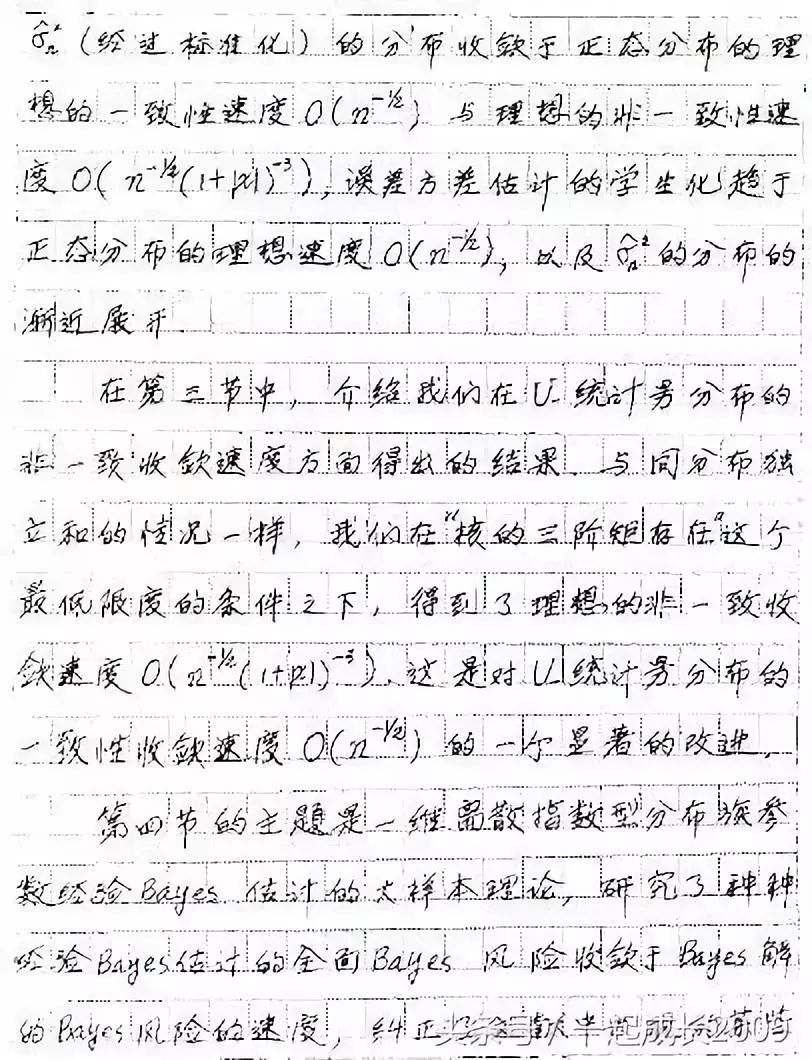 σ̂ₙ²（经过标准化）的分布收敛于正态分布的理
想的一致性速度 O(n^{-1/2}) 与理想的非一致性速
度 O(n^{-1/2}(1+|x|)^{-3})，误差方差估计的学生化趋于
正态分布的理想速度 O(n^{-1/2})，以及 σ̂ₙ² 的分布的
渐近展开.
在第三节中，介绍我们在 U 统计量分布的
非一致收敛速度方面得出的结果. 与同分布独
立和的情况一样，我们在"核的三阶矩存在"这个
最低限度的条件之下，得到了理想的非一致收
敛速度 O(n^{-1/2}(1+|x|)^{-3}). 这是对 U 统计量分布的
一致性收敛速度 O(n^{-1/2}) 的一个显著的改进.
第四节的主题是一维离散指数型分布族参
数经验 Bayes 估计的大样本理论，研究了种种
经验 Bayes 估计的全面 Bayes 风险收敛于 Bayes 解
的 Bayes 风险的速度，纠正